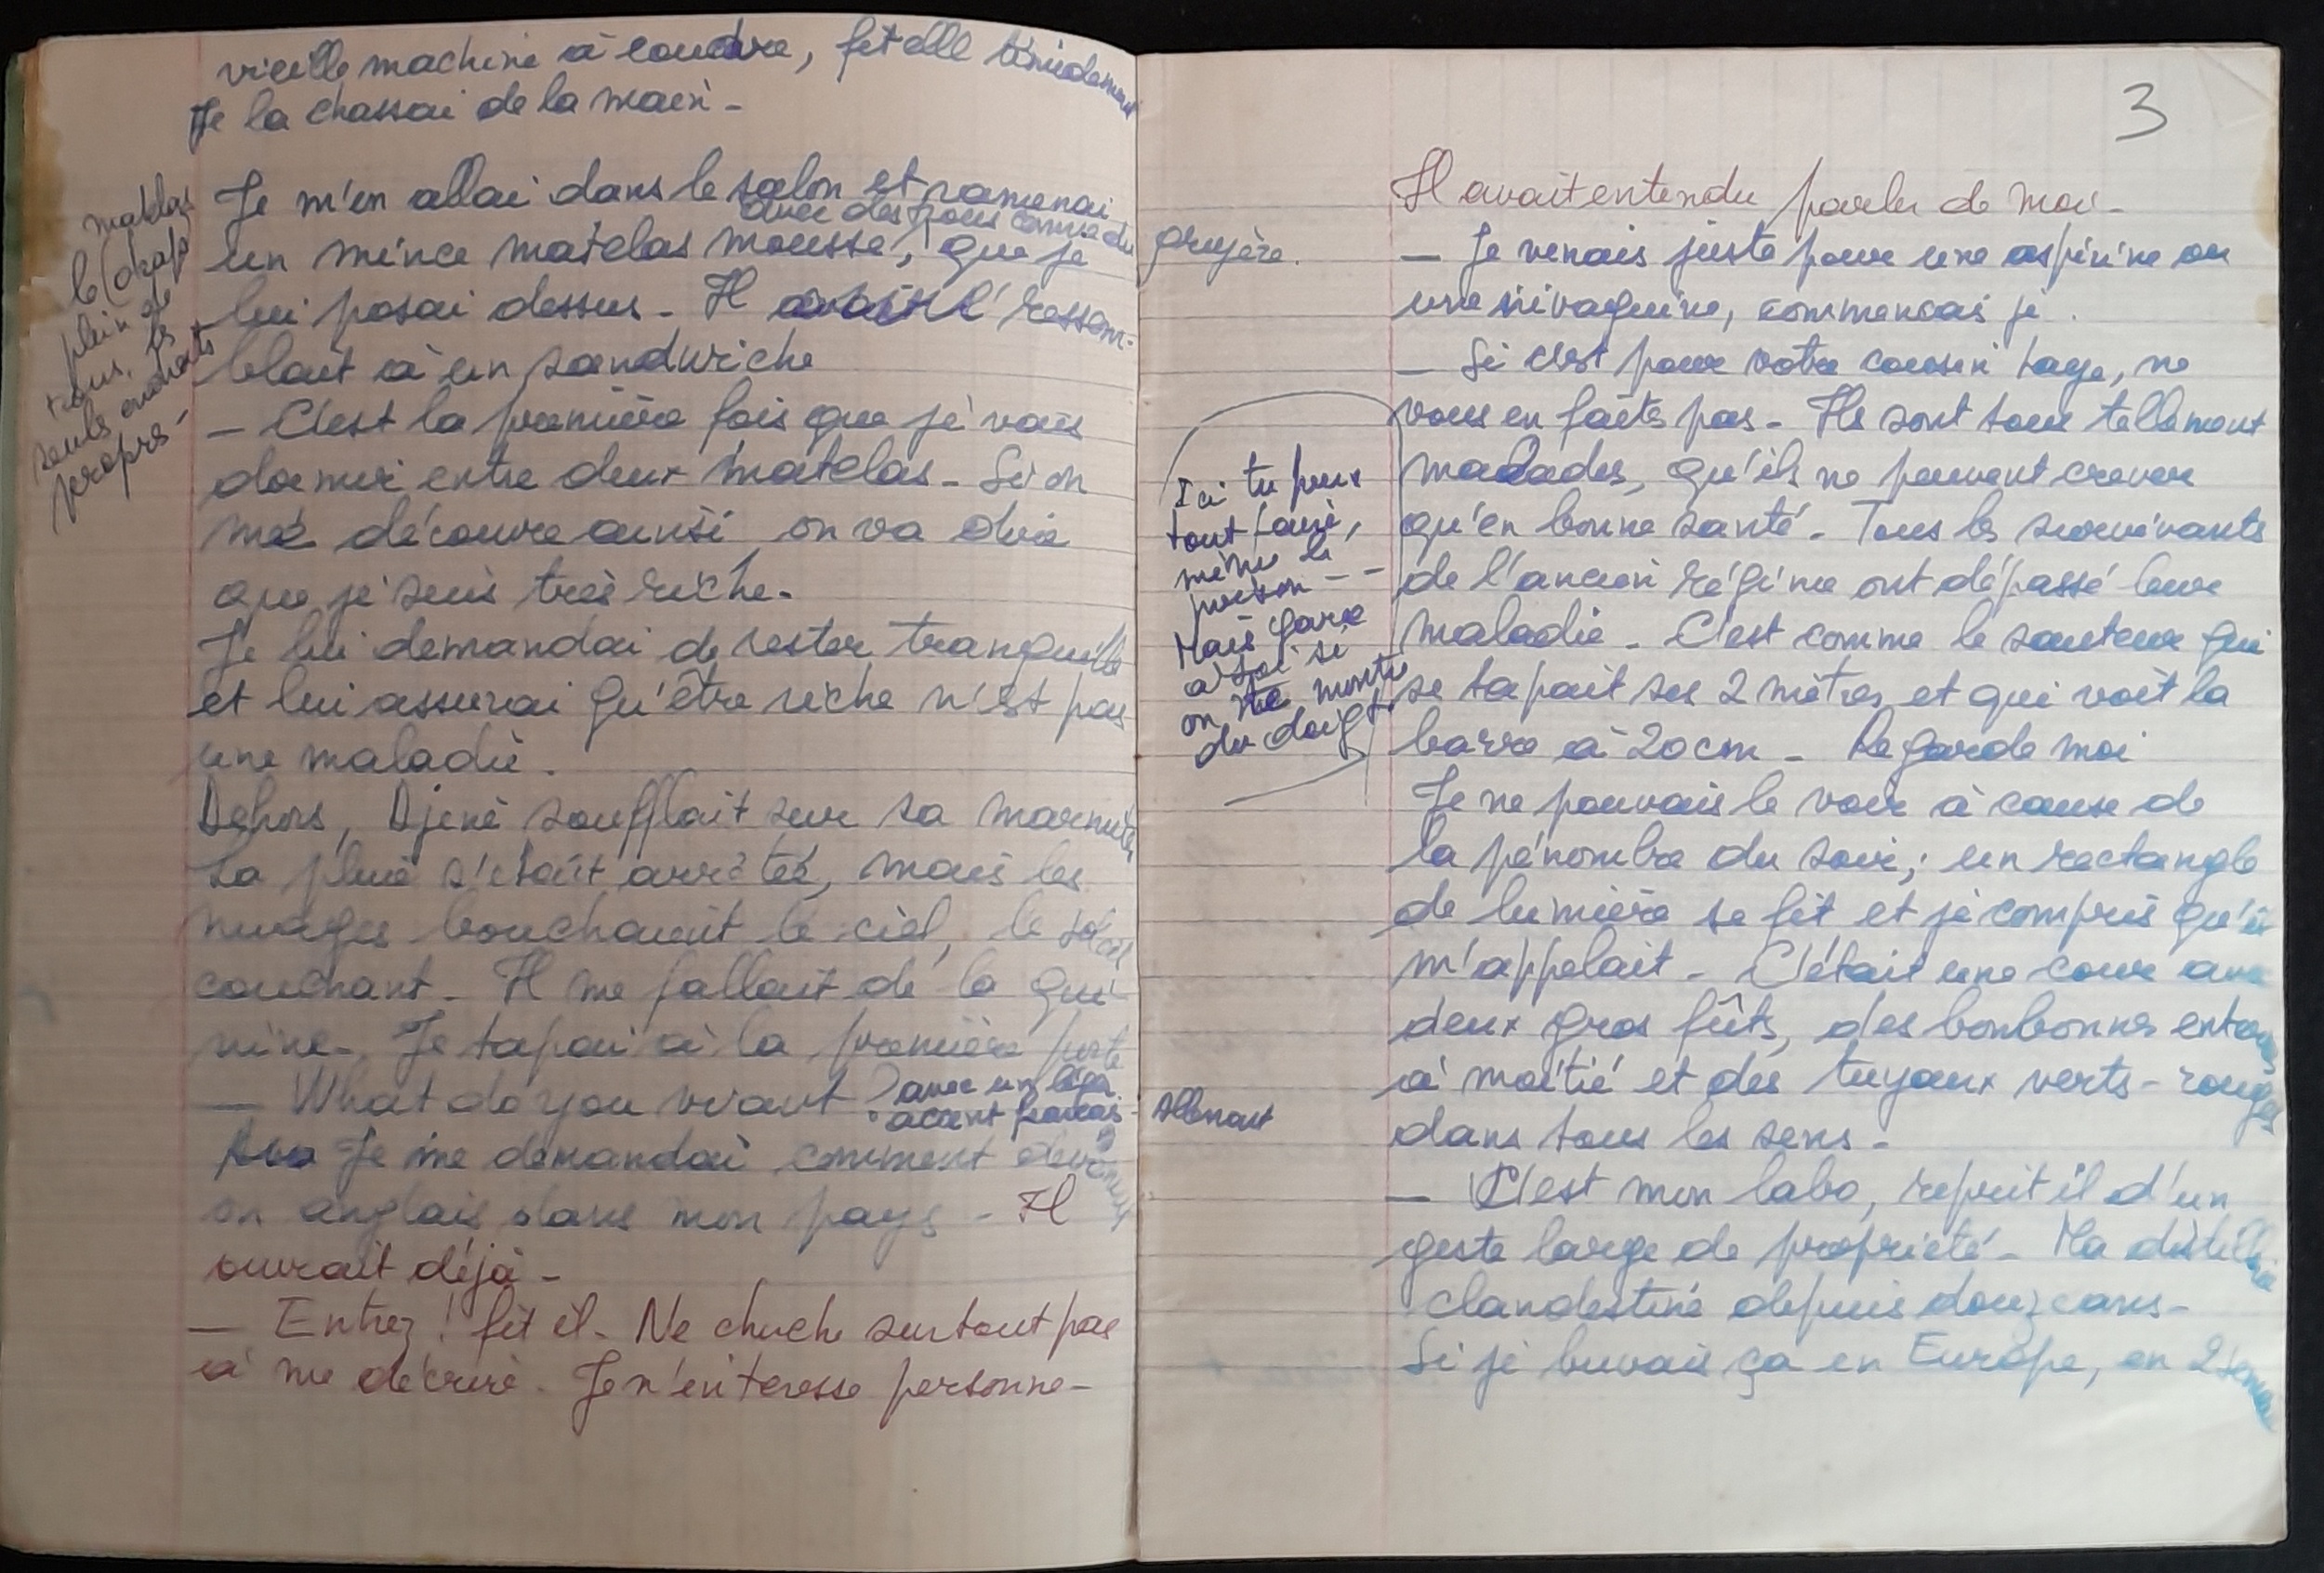 vieille machine à coudre, fit elle timidement
Je la chassai de la main -
Je m'en allai dans le salon et ramenai
avec des trous comme du
gruyère.
un mince matelas mousse, que je
lui posai dessus - Il ressem-
blait à un sandwiche
— C'est la première fois que je vais
dormir entre deux matelas - Si on
me découvre ainsi on va dire
que je suis très riche -
Je lui demandai de rester tranquille
et lui assurai qu'être riche n'est pas
une maladie.
Dehors, Djéné soufflait sur sa marmite
La pluie s'était arrêtée, mais les
nuages bouchaient le ciel, le soleil
couchant - Il me fallait de la qui-
nine - Je tapai à la première porte
— What do you want ? avec un léger
accent français -
Allemand
Je me demandai comment
en anglais dans mon pays - Il
ouvrait déjà -
— Entrez ! fit il - Ne cherche surtout pas
à me décrire. Je n'interesse personne -
matelas
le drap
plein de
trous, les
seuls endroits
propres -
3
Il avait entendu parler de moi -
— Je venais juste pour une aspirine ou
une nivaquine, commençais je .
— Si c'est pour votre cousin Laye, ne
vous en faites pas - Ils sont tous tellement
malades, qu'ils ne peuvent crever
qu'en bonne santé - Tous les survivants
de l'ancien régime ont dépassé leur
maladie - C'est comme le sauteur qui
se tapait ses 2 mètres et qui voit la
barre à 20 cm - Regarde moi
Je ne pouvais le voir à cause de
la pénombre du soir ; un rectangle
de lumière se fit et je compris qu'il
m'appelait - C'était une cour avec
deux gros fûts, des bonbonnes enterrées
à moitié et des tuyaux verts - rouges
dans tous les sens -
— C'est mon labo, reprit il d'un
geste large de propriété - Ma distillerie
clandestine depuis douze ans -
Si je buvais ça en Europe, en 2 semaines
Ici tu peux
tout faire,
même le
poison - -
Mais gare
à toi si
on te montre
du doigt